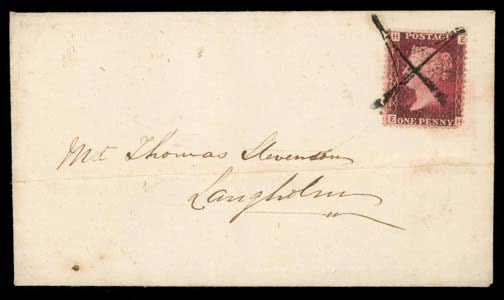 H E
POSTAGE
E H
ONE PENNY
Mr. Thomas Stevenson
Langholm